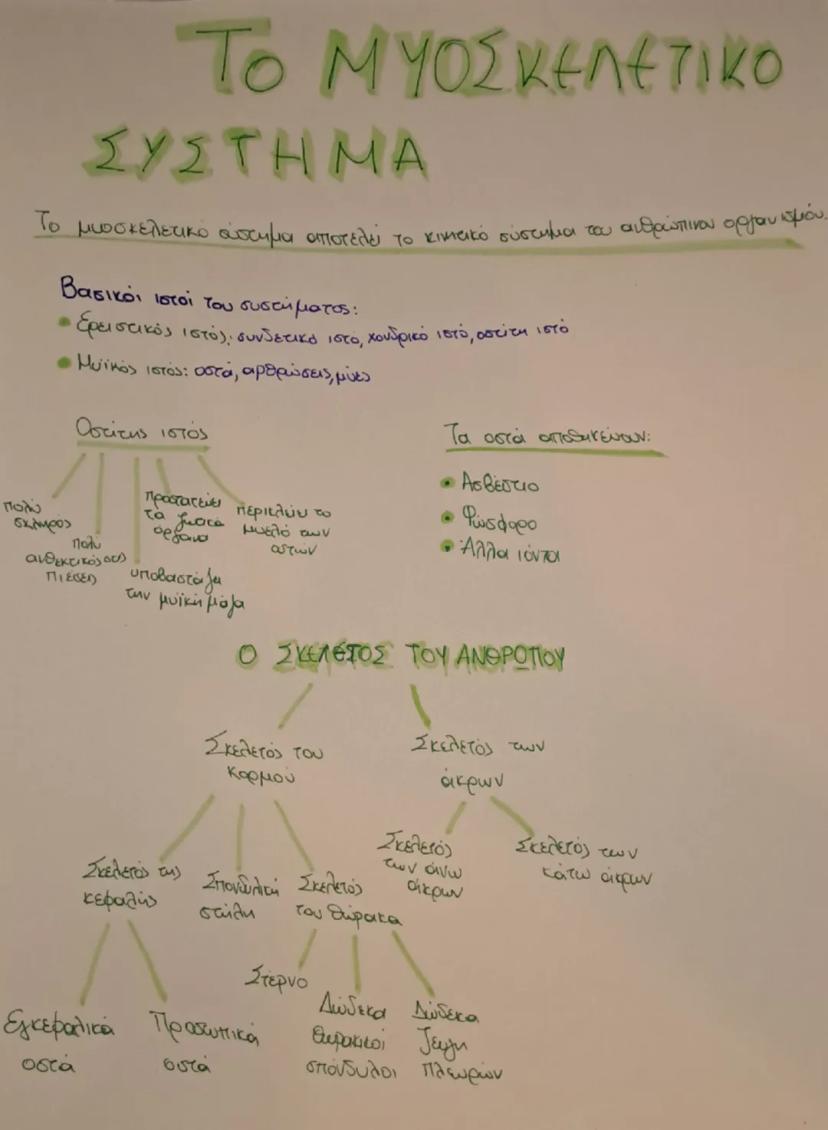 Το ΜΥΟΣΚΕΛΕΤΙΚΟ
ΣΥΣΤΗΜΑ
Το μυοσκελετικό σύστημα αποτελεί το κινητικό σύστημα του ανθρώπινου οργανισμού.
Βασικοί ιστοί του συστήματος:
• Ερειστικός ιστός: συνδετικό ιστό, χονδρικό ιστό, οστίτη ιστό
• Μυϊκός ιστός: οστά, αρθρώσεις, μύες
Οστίτης ιστός
πολύ
σκληρός
πολύ
ανθεκτικός στις
πιέσεις
υποβαστάζει
την μυϊκή μάζα
προστατεύει
τα ζωτικά
όργανα
περικλείουν το
μυελό των
οστών
Τα οστά αποθηκεύουν:
• Ασβέστιο
• Φώσφορο
• Άλλα ιόντα
Ο ΣΚΕΛΕΤΟΣ ΤΟΥ ΑΝΘΡΩΠΟΥ
Σκελετός του
κορμού
Σκελετός των
άκρων
Σκελετός της
κεφαλής
Σπονδυλική
στήλη
Σκελετός
του θώρακα
Σκελετός
των άνω
άκρων
Σκελετός των
κάτω άκρων
Εγκεφαλικά
οστά
Προσωπικά
οστά
Στέρνο
Δώδεκα
θωρακικοί
σπόνδυλοι
Δώδεκα
ζεύγη
πλευρών